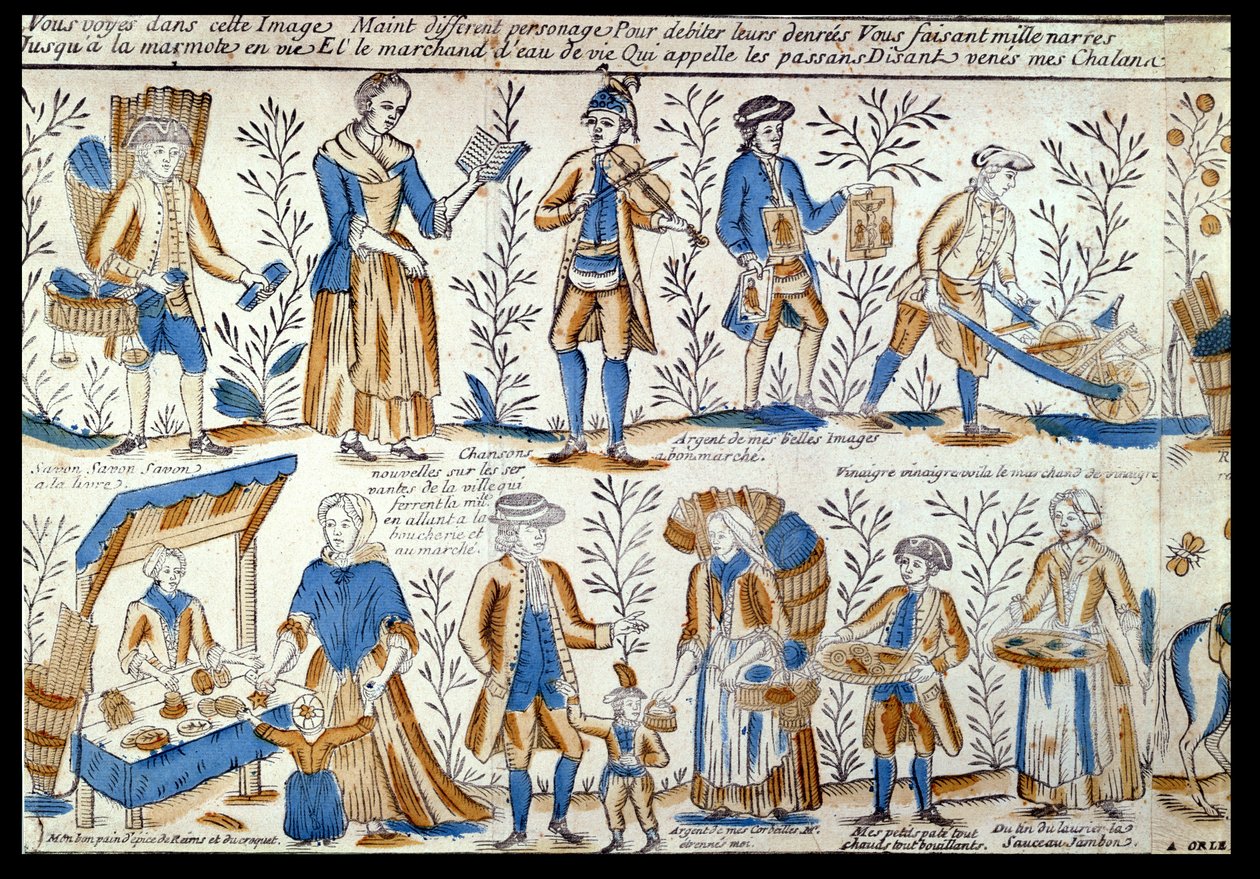 Vous voyes dans cette Image Maint different personage Pour debiter leurs denrées Vous faisant mille narres
Jusqu'à la marmote en vie Et le marchand d'eau de vie Qui appelle les passans Disant venés mes Chalans
Savon Savon Savon
a la livre.
Chansons
nouvelles sur les ser
vantes de la ville qui
ferrent la mule
en allant a la
boucherie et
au marché.
Argent de mes belles Images
a bon marché.
Vinaigre vinaigre voila le marchand de vinaigre
R
Mon bon pain d'épice de Reims et du croquet.
Argent de mes Corbeilles Me.
étrennés moi.
Mes petits paté tout
chauds tout bouillants.
Du tin du laurier la
Sauce au Jambon.
A ORLE